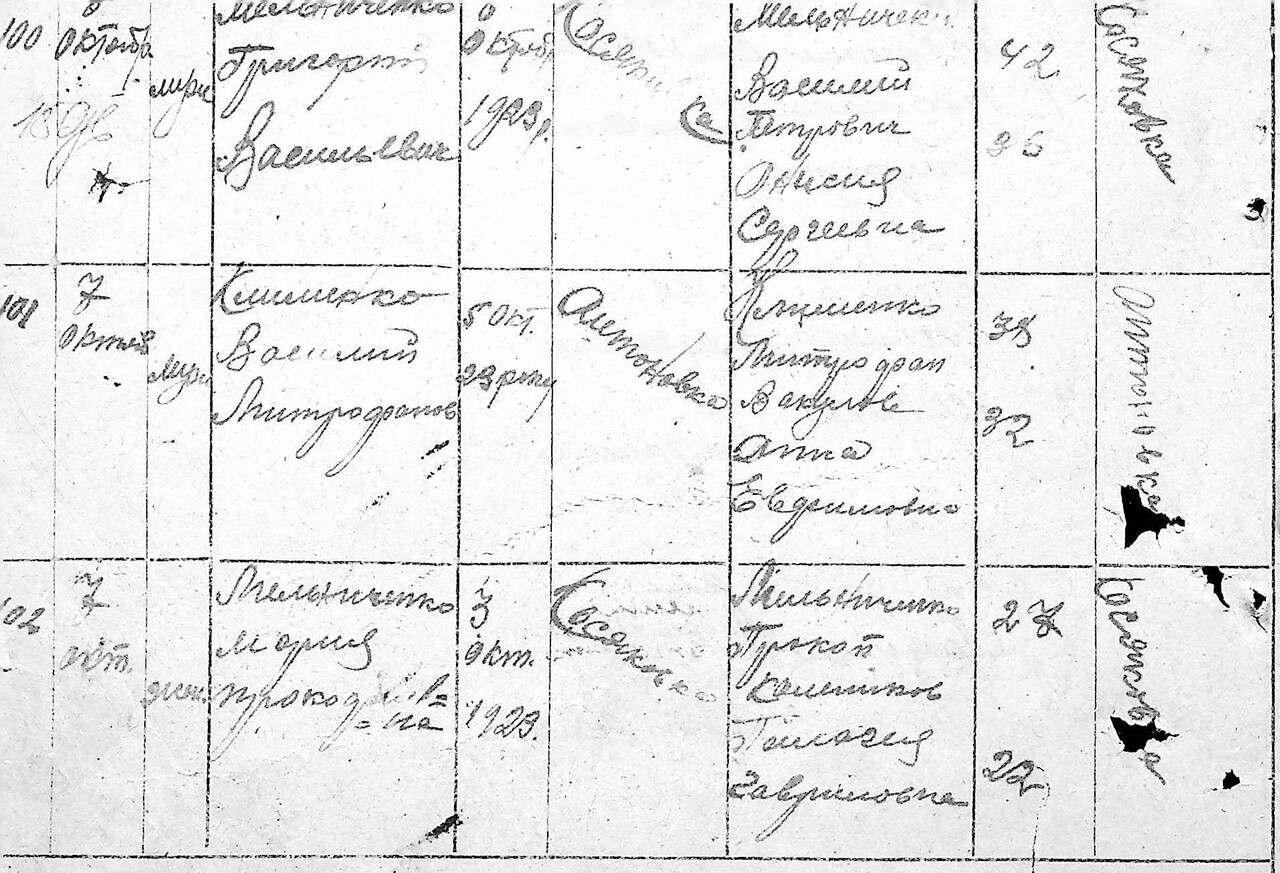 100
Октября
муж
Мельниченко
Григорий
Васильевич
Октяб
1923 р.
ка
Мельниченк
Василий
Петрович
Онисия
Сергеевна
42
36
101
7
Октяб
муж
Клименко
Василий
Митрофанов
5 Окт.
23 року
Антоновка
Клименко
Митрофан
Вакулов
Анна
Евдфимовна
38
32
Антоновка
102
7
окт.
жен.
Мельниченко
Мария
Прокоф
=на
3
окт.
1923.
Косяковка
Мельниченко
Прокоп
Палагия
Гавриловна
27
22